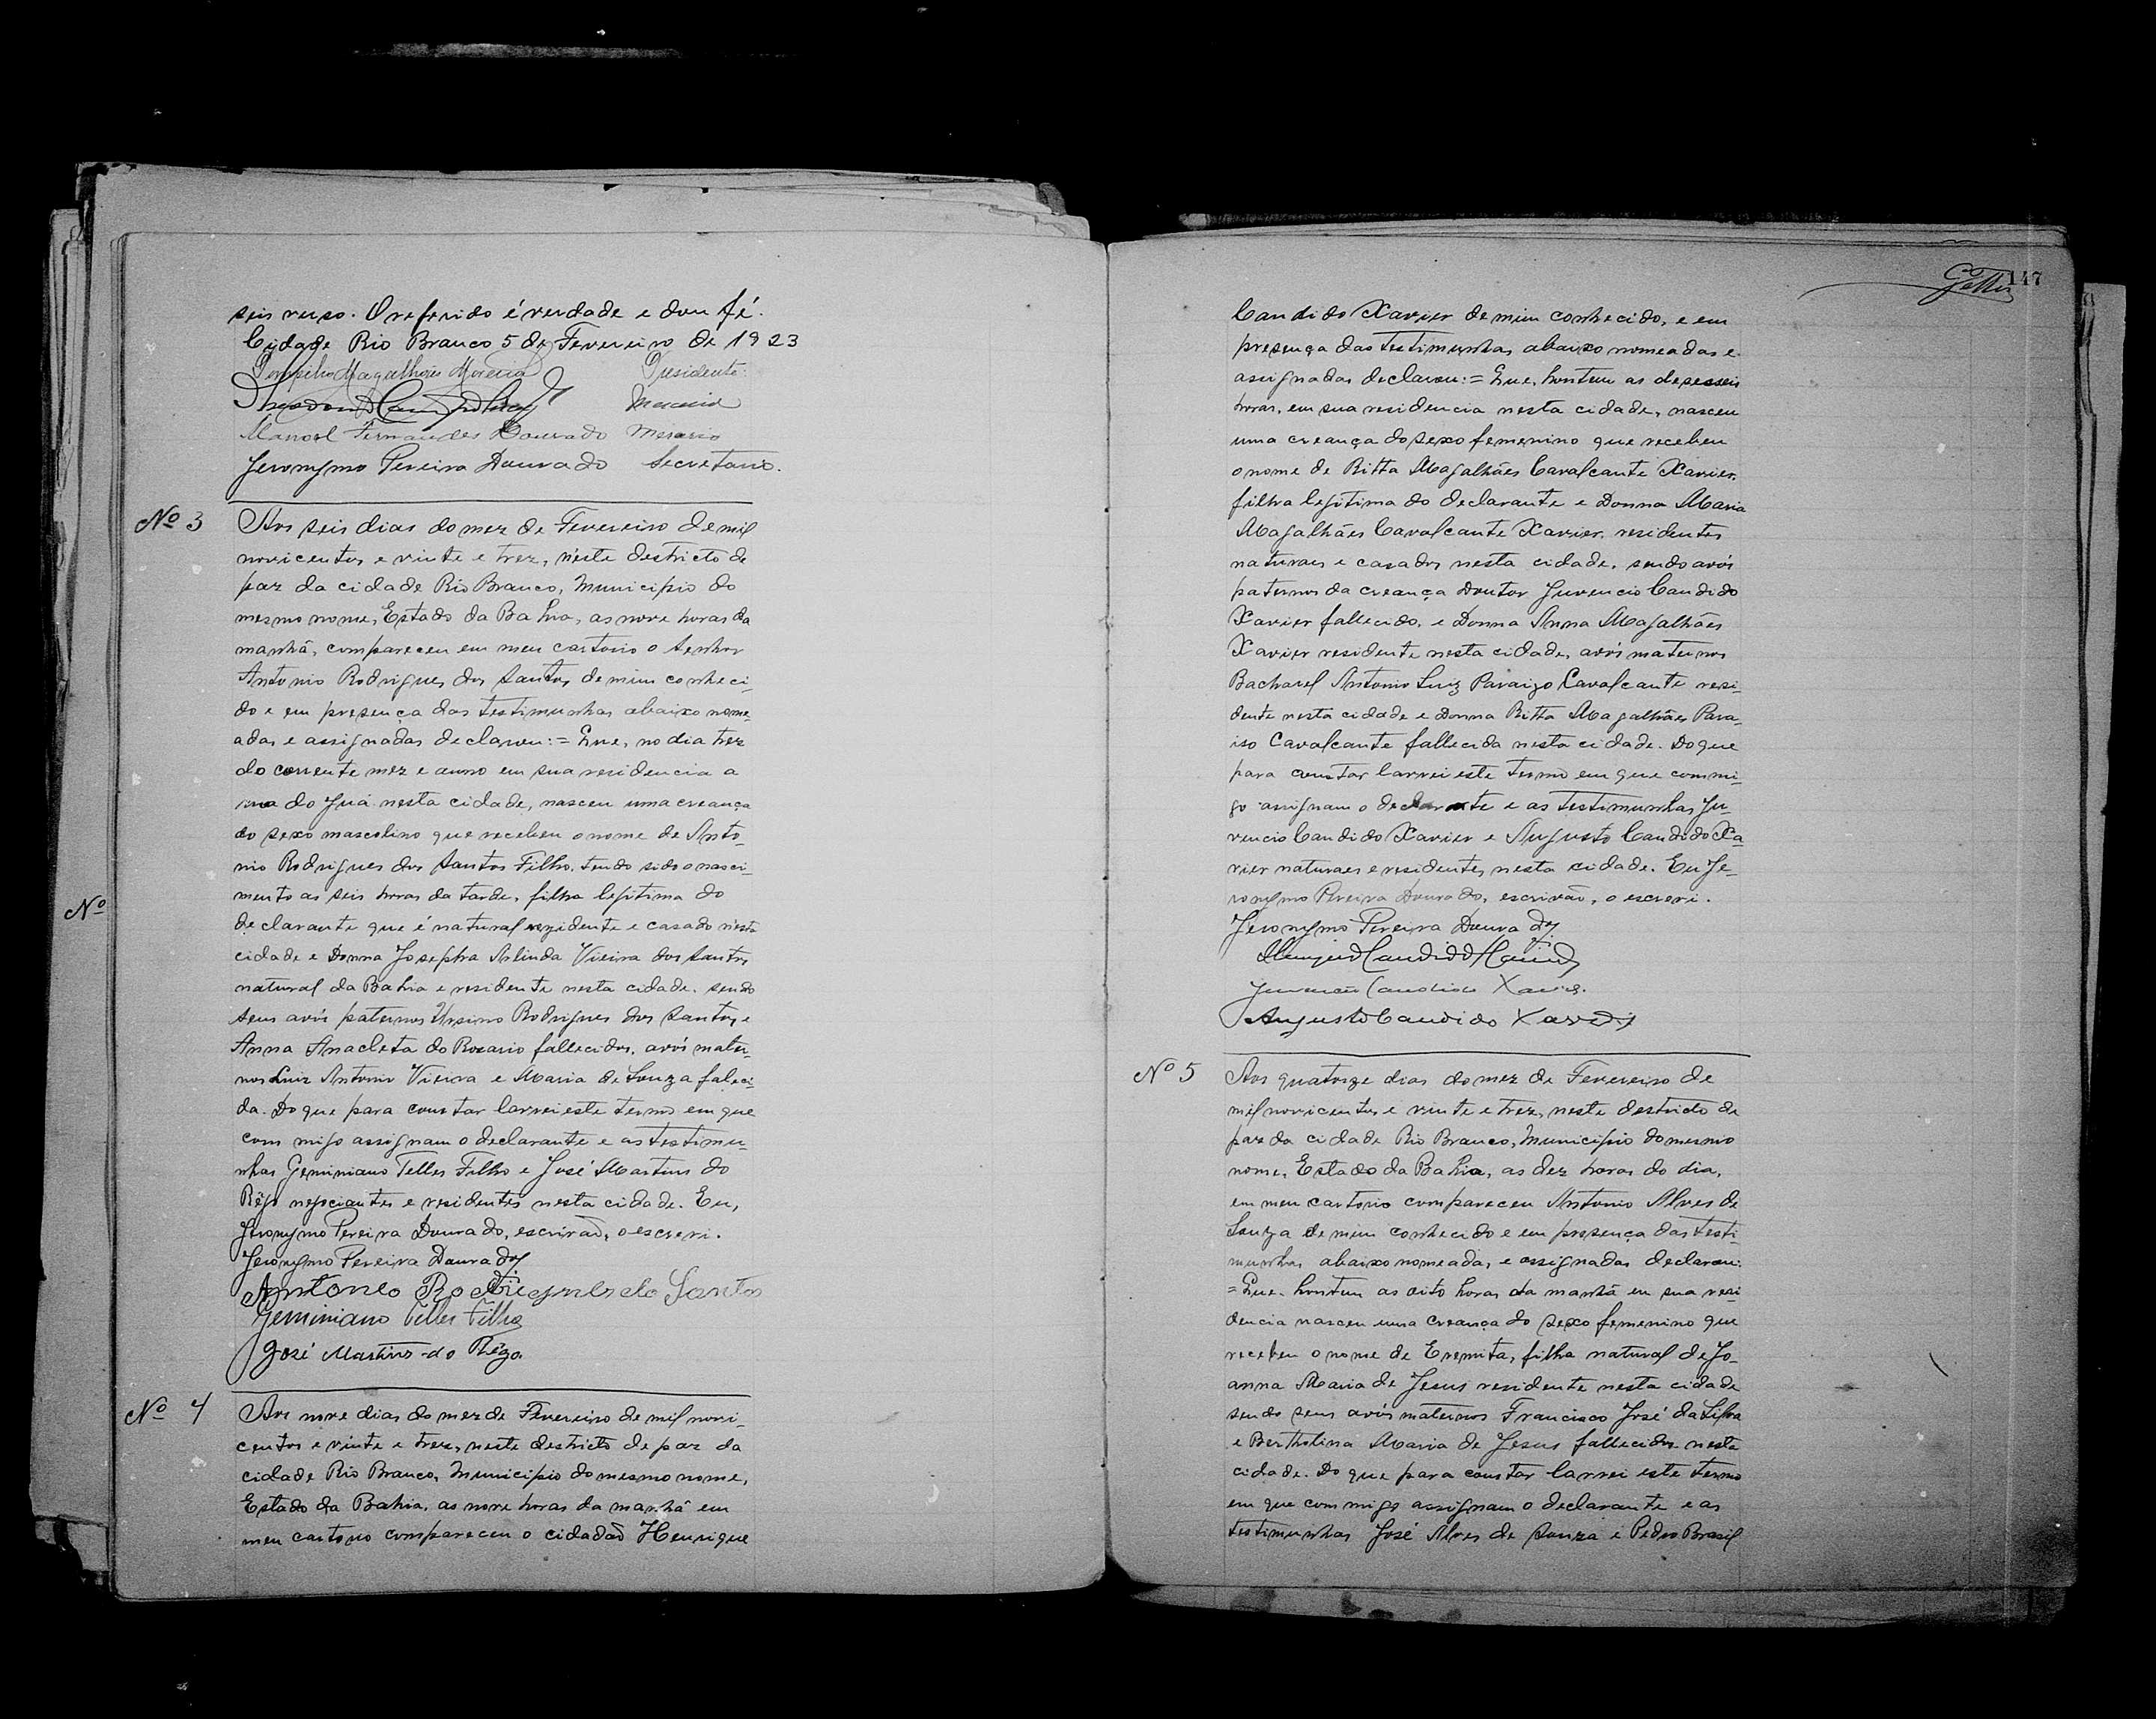 seis verso. O referido é verdade e dou fé.
Cidade Rio Branco 5 de Fevereiro de 1923
Magalhães Moreira Presidente
Mesario
Manoel Fernandes Dourado Mesario
Jeronymo Pereira Dourado Secretario.
Nº 3 Aos seis dias do mez de Fevereiro de mil
novicentos e vinte e trez, n'este destricto de
paz da cidade Rio Branco, Municipio do
mesmo nome, Estado da Bahia, as nove horas da
manhã, compareceu em meu cartorio o Senhor
Antonio Rodrigues dos Santos de mim conheci-
do e em presença das testimunhas abaixo nome-
adas e assignadas declarou:= Que, no dia trez
do corrente mez e anno em sua residencia a
rua do Juá nesta cidade, nasceu uma creança
do sexo mascolino que recebeu o nome de Anto-
nio Rodrigues dos Santos Filho, tendo sido o nasci-
mento as seis horas da tarde, filho legitimo do
declarante que é natural rezidente e casado n'esta
cidade e Donna Josepha Arlinda Vieira dos Santos
natural da Bahia e residente nesta cidade. sendo
seus avós paternos Ursino Rodrigues dos Santos e
Anna Anacleta do Rosario fallecidos, avós mater-
nos Luiz Antonio Vieira e Maria de Souza faleci-
da. Do que para constar lavrei este termo em que
com migo assignam o declarante e as testimu-
nhas Geminiano Telles Filho e José Martins do
Rêgo negociantes e residentes nesta cidade. Eu,
Jeronymo Pereira Dourado, escrivaõ, o escrevi.
Jeronymo Pereira Dourado
Antonio Rodriguels do Santos
Geminiano Telles Filho
José Martins do Rêgo
Nº
Nº 4 Aos nove dias do mez de Fevereiro de mil novi-
centos e vinte e trez, neste destricto de paz da
cidade Rio Branco, Municipio do mesmo nome,
Estado da Bahia, as nove horas da manhã em
meu cartorio compareceu o cidadaõ Henrique
147
Candido Xavier de mim conhecido, e em
presença das testimunhas abaixo nomeadas e
assignadas declarou:= Que, hontem as deseseis
horas, em sua residencia nesta cidade, nasceu
uma creança do sexo femenino que recebeu
o nome de Ritta Magalhães Cavalcante Xavier,
filha legitima do declarante e Donna Maria
Magalhães Cavalcante Xavier, residentes
naturaes e casados nesta cidade, sendo avós
paternos da creança Doutor Juvencio Candido
Xavier fallecido, e Donna Anna Magalhães
Xavier residente nesta cidade, avós maternos
Bacharel Antonio Luiz Paraizo Cavalcante resi-
dente nesta cidade e Donna Ritta Magalhães Para-
iso Cavalcante fallecida nesta cidade. Do que
para constar lavrei este termo em que commi-
go assignam o declarante e as testimunhas Ju-
vencio Candido Xavier e Augusto Candido Xa-
vier naturaes e residentes nesta cidade. Eu Je-
ronymo Pereira Dourado, escrivaõ, o escrevi.
Jeronymo Pereira Dourado
Henrique Candido Xavier
Juvencio Candido Xavier
Augusto Candido Xavier
Nº 5 Aos quatorze dias do mez de Fevereiro de
mil novicentos e vinte e trez, neste destricto de
paz da cidade Rio Branco, Municipio do mesmo
nome, Estado da Bahia, as dez horas do dia,
em meu cartorio compareceu Antonio Alves de
Souza de mim conhecido e em presença das testi-
munhas abaixo nomeadas e assignadas declarou:
= Que. hontem as oito horas da manhã em sua resi-
dencia nasceu uma creança do sexo femenino que
recebeu o nome de Eremita, filha natural de Jo-
anna Maria de Jesus residente nesta cidade
sendo seus avós maternos Francisco José da Silva
e Bertholina Maria de Jesus fallecidos nesta
cidade. Do que para constar lavrei este termo
em que com migo assignam o declarante e as
testimunhas José Alves de Souza e Pedro Brasil